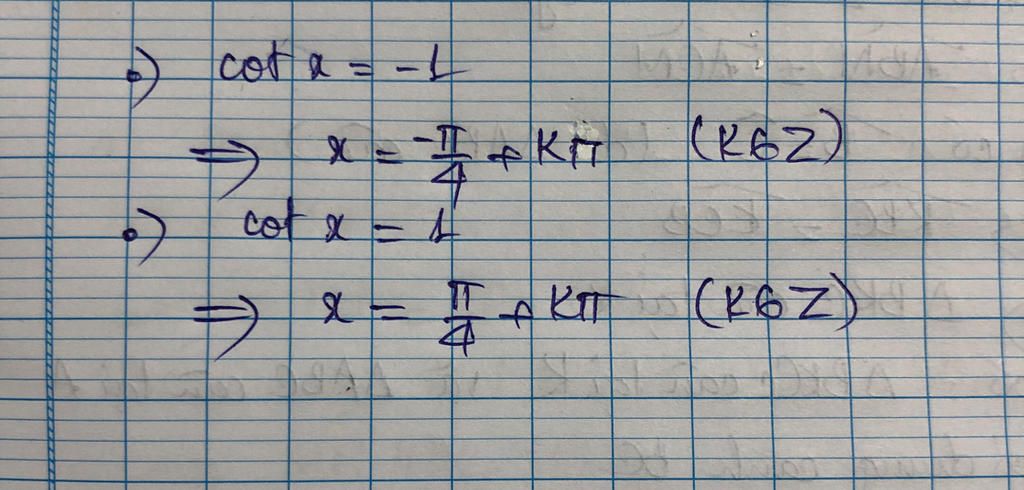 •) cot x = -1
⇒ x = -π/4 + Kπ (K∈Z)
•) cot x = 1
⇒ x = π/4 + Kπ (K∈Z)